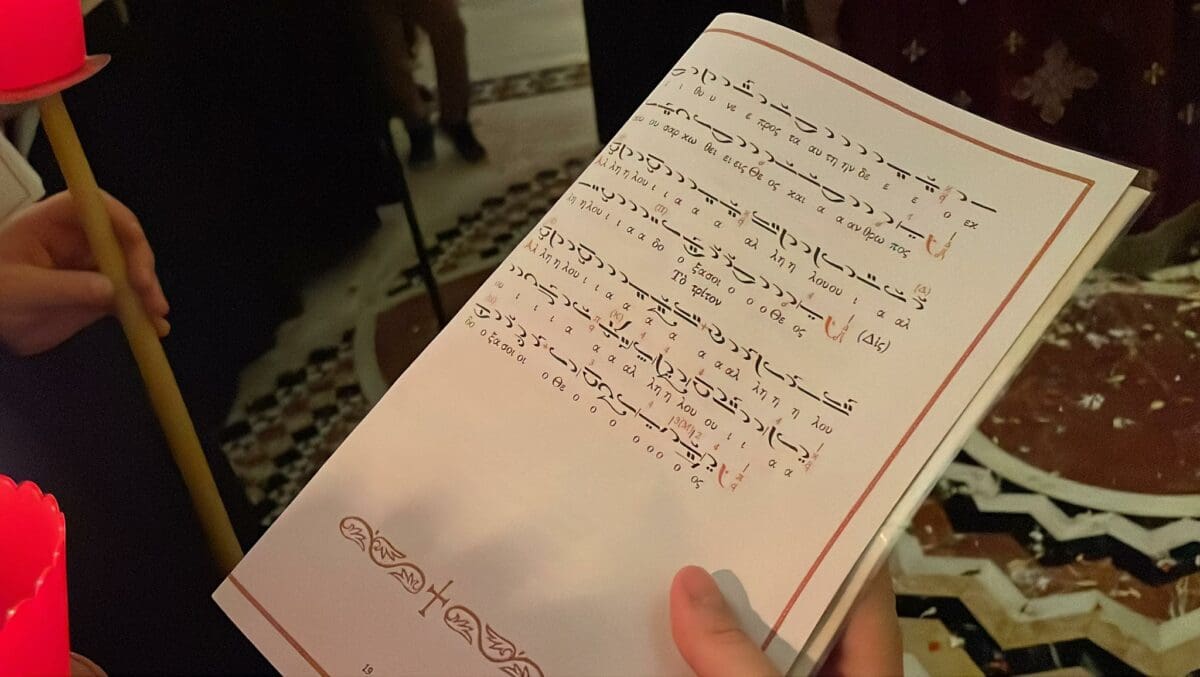 ι θυ υ νε ε προς τα αυ τη ην δε ε ε ε ο εχ
ου ου σαρ κω θει ει εις Θε ος και α α αν θρω πος
Αλ λη λου ι ι α α α αλ λη η λουου ι α αλ
λη ηλου ι ι α α δο ο ξασοι ο ο ο Θε ος (Δίς)
Τὸ τρίτον
Αλ λη η λου ι ι α α α α α ααλ λη η η λου
ου ι ι ι α α α αλ λη η λου ου ι ι α α
δο ο ξασοι οι ο Θε ο ο ο ο οο ο ος
19